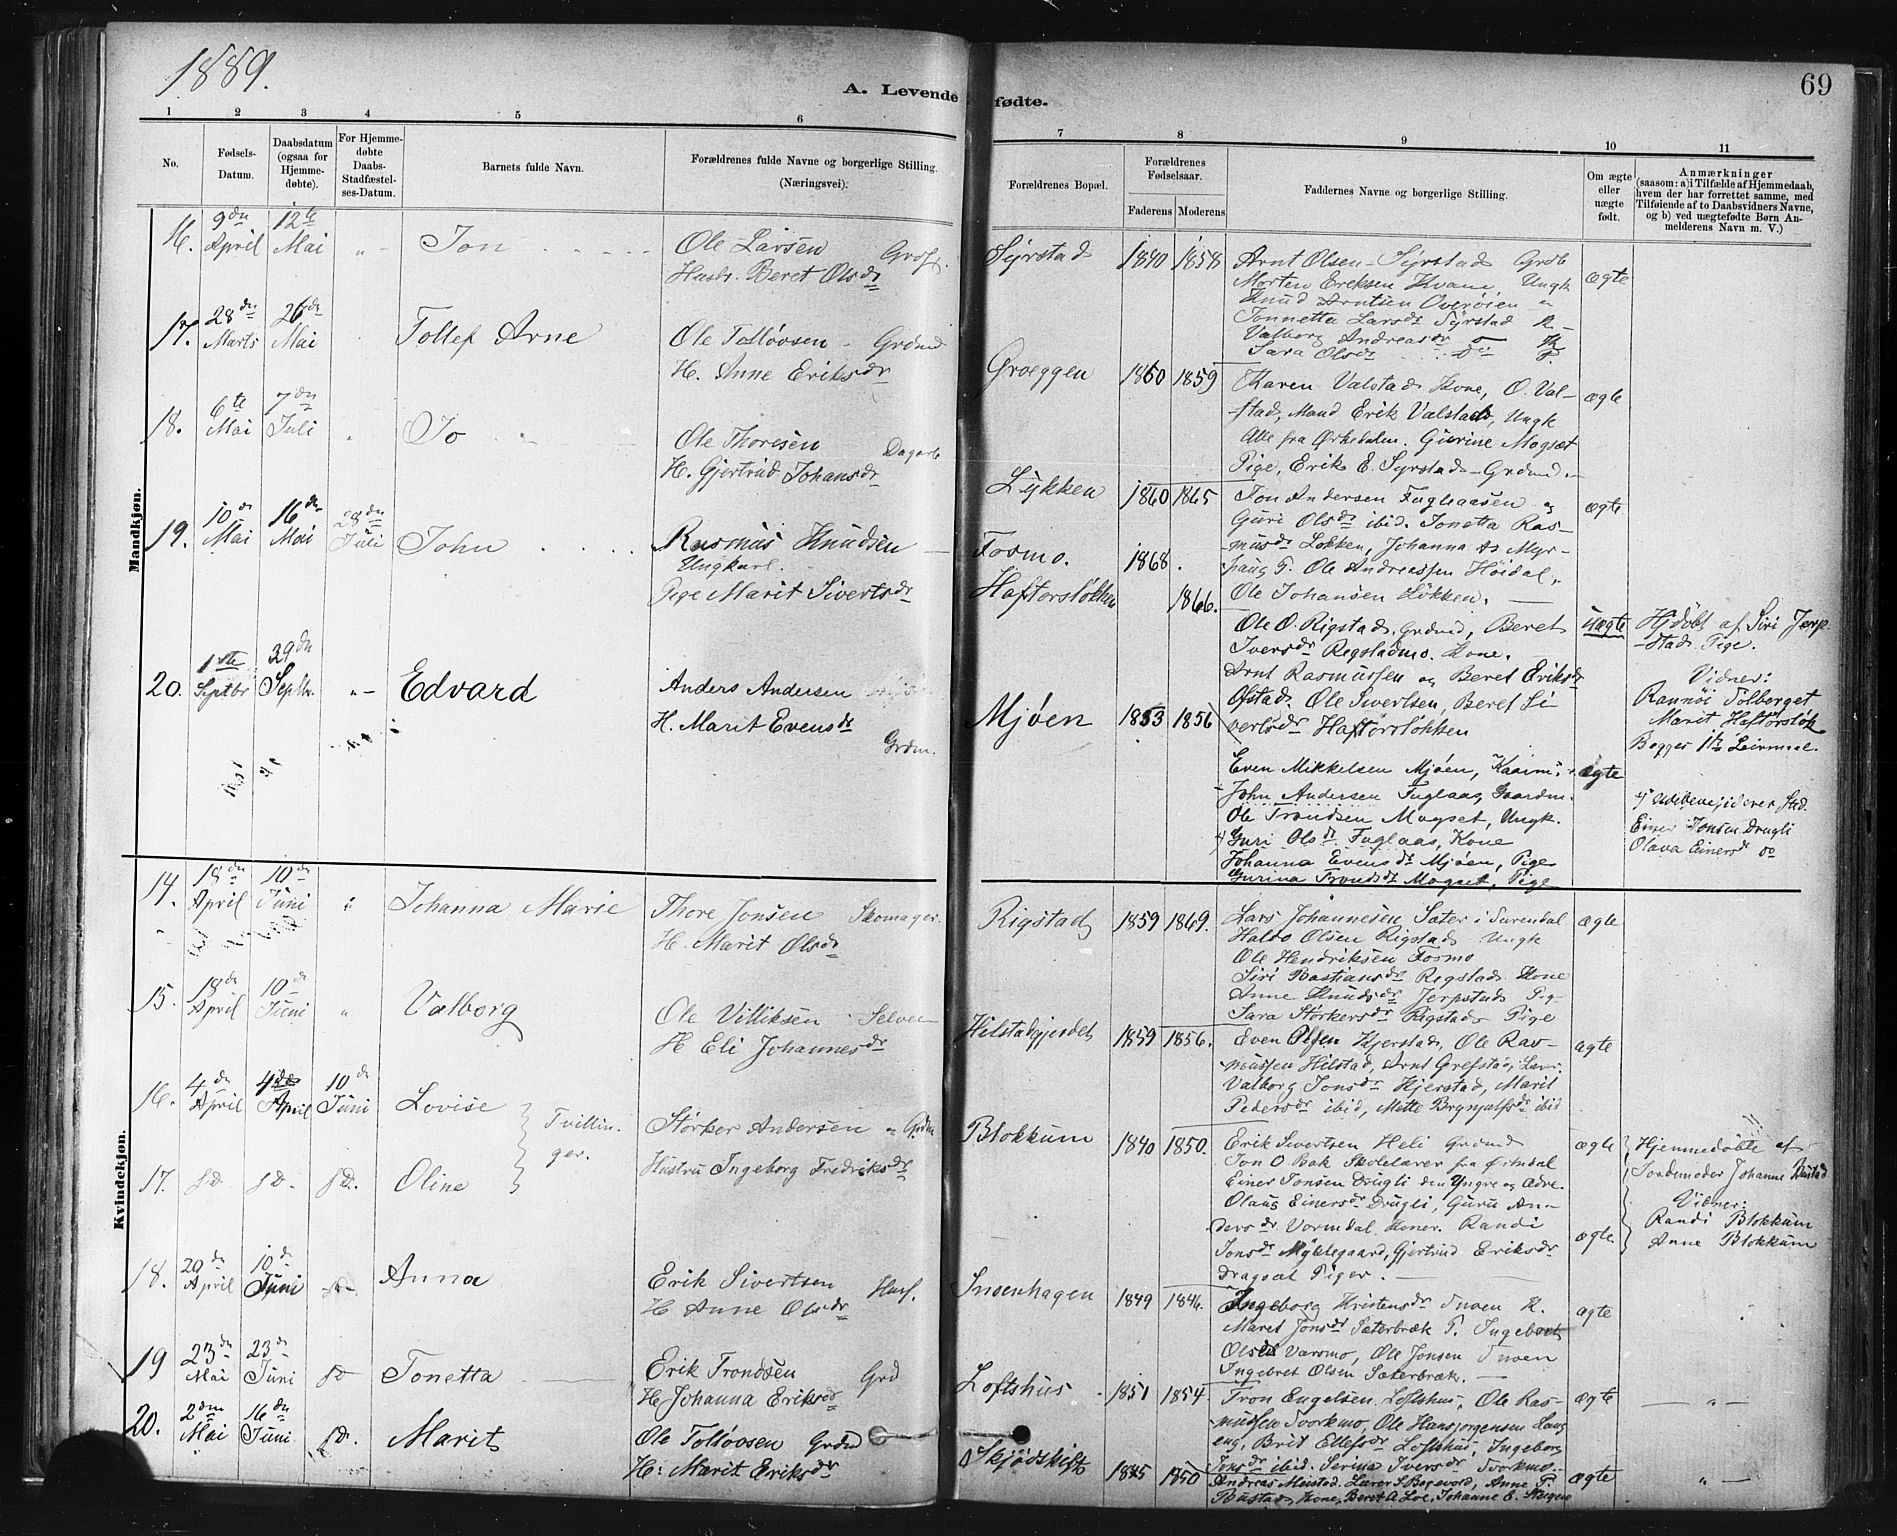 1889.
A. Levende fødte.
69
1 2 3 4 5 6 7 8 9 10 11
No.
Fødsels-
Datum.
Daabsdatum
(ogsaa for
Hjemme-
døbte).
For Hjemme-
døbte
Daabs-
Stadfæstel-
ses-Datum.
Barnets fulde Navn.
Forældrenes fulde Navne og borgerlige Stilling.
(Næringsvei).
Forældrenes Bopæl.
Forældrenes
Fødselsaar.
Faderens Moderens
Faddernes Navne og borgerlige Stilling.
Om ægte
eller
uægte
født.
Anmærkninger
(saasom: a) i Tilfælde af Hjemmedaab,
hvem der har forrettet samme, med
Tilføiende af to Daabsvidners Navne,
og b) ved uægtefødte Børn An-
melderens Navn m. V.)
Mandkjøn.
16. 9de April 12te Mai Jon
Ole Larsen
Hustr. Beret Olsdr
Syrstad 1840 1858
Arnt Olsen Syrstad Grdb
Morten Eriksen Kvam, Ungk
Knud Arntsen Overøien
Tonnetta Larsdr Syrstad
Valborg Andreasdr
Sara Olsdr
ægte
17. 28de Marts 26de Mai Tollef Arne
Ole Tolløvsen Grdmd
H. Anne Eriksdr
Grøggen 1860 1859
Karen Valstad Kone, O. Val-
stad, Mand Erik Valstad, Ungk
Alle fra Ørkedalen. Gurine Mogset
Pige, Erik E. Syrstad Grdmd.
ægte
18. 6te Mai 7de Juli Jo
Ole Thoresen Dagarb
H. Gjertrud Johansdr
Lykken 1860 1865
Jon Andersen Fuglaasen og
Guri Olsdr ibid. Tonetta Ras-
musdr Løkken, Johanna As Myr-
haug P. Ole Andreassen Høidal,
Ole Johansen Løkken.
ægte
19. 10de Mai 16de Mai 28de Juli John
Rasmus Knudsen
Ungkarl.
Pige Marit Sivertsdr
Fosmo. 1868.
Haftorsløkken 1866.
Ole O. Rigstad, Grdmd, Beret
Iversdr Rigstadmo. Kone.
Arnt Rasmussen og Beret Eriksdr
Ofstad. Ole Sivertsen, Beret Si
vertsdr Haftorsløkken
uægte
Hjdøbt af Siri Jerp-
stad Pige.
Vidner:
Rannøi Solberget
Marit Haftorsløk
Begges 1te Leiermaal.
20. 1ste Septbr 29de Septbr Edvard
Anders Andersen
H. Marit Evensdr
Grdm.
Mjøen 1853 1856
Even Mikkelsen Mjøen, Kaarm.
John Andersen Fuglaas, Gaardm.
Ole Trondsen Mogset, Ungk.
Guri Olsdr Fuglaas, Kone
Johanna Evensdr Mjøen, Pige
Gurina Trondsdr Mogset, Pige
ægte
Einer Jonsen Drugli
Olava Einersdr do
Kvindekjøn.
14. 18de April 10de Juni Johanna Marie
Thore Jonsen Skomager.
H. Marit Olsdr
Rigstad 1859 1869.
Lars Johannesen Sæter i Surendal
Haldo Olsen Rigstad Ungk
Ole Hendriksen Fosmo
Siri Bastiansdr Rigstad Kone
Anne Knudsdr Jerpstad Pig
Sara Størkersdr Rigstad Pige
ægte
15. 18de April 10de Juni Valborg
Ole Villiksen Selveier
H Eli Johannesdr
Hilstadgjerdet 1859 1856.
Even Olsen Hjerstad, Ole Ras-
mussen Hilstad, Arnt Grefstad, Lærer.
Valborg Jonsdr Hjerstad, Marit
Pedersdr ibid, Mitte Brynjulfsdr ibid
ægte
16. 4de April 4de April 10de Juni Lovise
Tvillin.
ger.
Størker Andersen Grdm
Hustru Ingeborg Fredriksdr
Blokkum 1840 1850.
17. sD. sD. sD. Oline
Erik Sivertsen Heli Grdmd
Jon O Bak Skolelærer fra Ørkedal
Einer Jonsen Drugli den Yngre og Ældre.
Olaus Einersdr Drugli, Guru An-
dersdr Vormdal Koner. Randi
Jonsdr Myklegaard, Gjertrud Eriksdr
Dragset Piger.
ægte
ægte
Hjemmedøbte af
Jordemoder Johanne Rustad
Vidner:
Randi Blokkum
Anne Blokkum
18. 20de April 10de Juni sD. Anna
Erik Sivertsen Husf.
H Anne Olsdr
Snoenhagen 1849 1846.
Ingeborg Kristensdr Snoen K.
Maret Jonsdr Sæterbræk P. Ingeborg
Olsdr Varsmo, Ole Jonsen Snoen
Ingebret Olsen Sæterbræk.
ægte
19 23de Mai 23de Juni sD Tonetta
Erik Trondsen Grd
H Johanna Eriksdr
Loftshus 1851 1854.
Tron Engelsen Loftshus, Ole Ras-
mussen Svorkmo, Ole Hansjørgensen Lang
eng, Brit Ellefsdr Loftshus, Ingeborg
Jonsdr ibid. Serina Iversdr Svorkmo.
ægte
20. 2den Mai 16de Juni sD. Marit
Ole Tolløvsen Grdm
H: Marit Eriksdr
Skjødskift 1845 1850
Andreas Meistad. Lærer S Bagevold, Anne P.
Rustad, Kone, Beret A Loe, Johanne E.
ægte